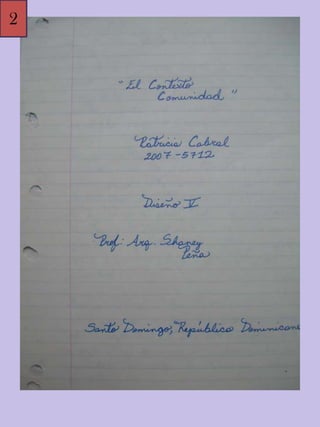 2
"El Contexto
Comunidad"
Patricia Cabral
2007-5712
Diseño V
Prof: Arq. Shaney
Peña
Santo Domingo, República Dominicana